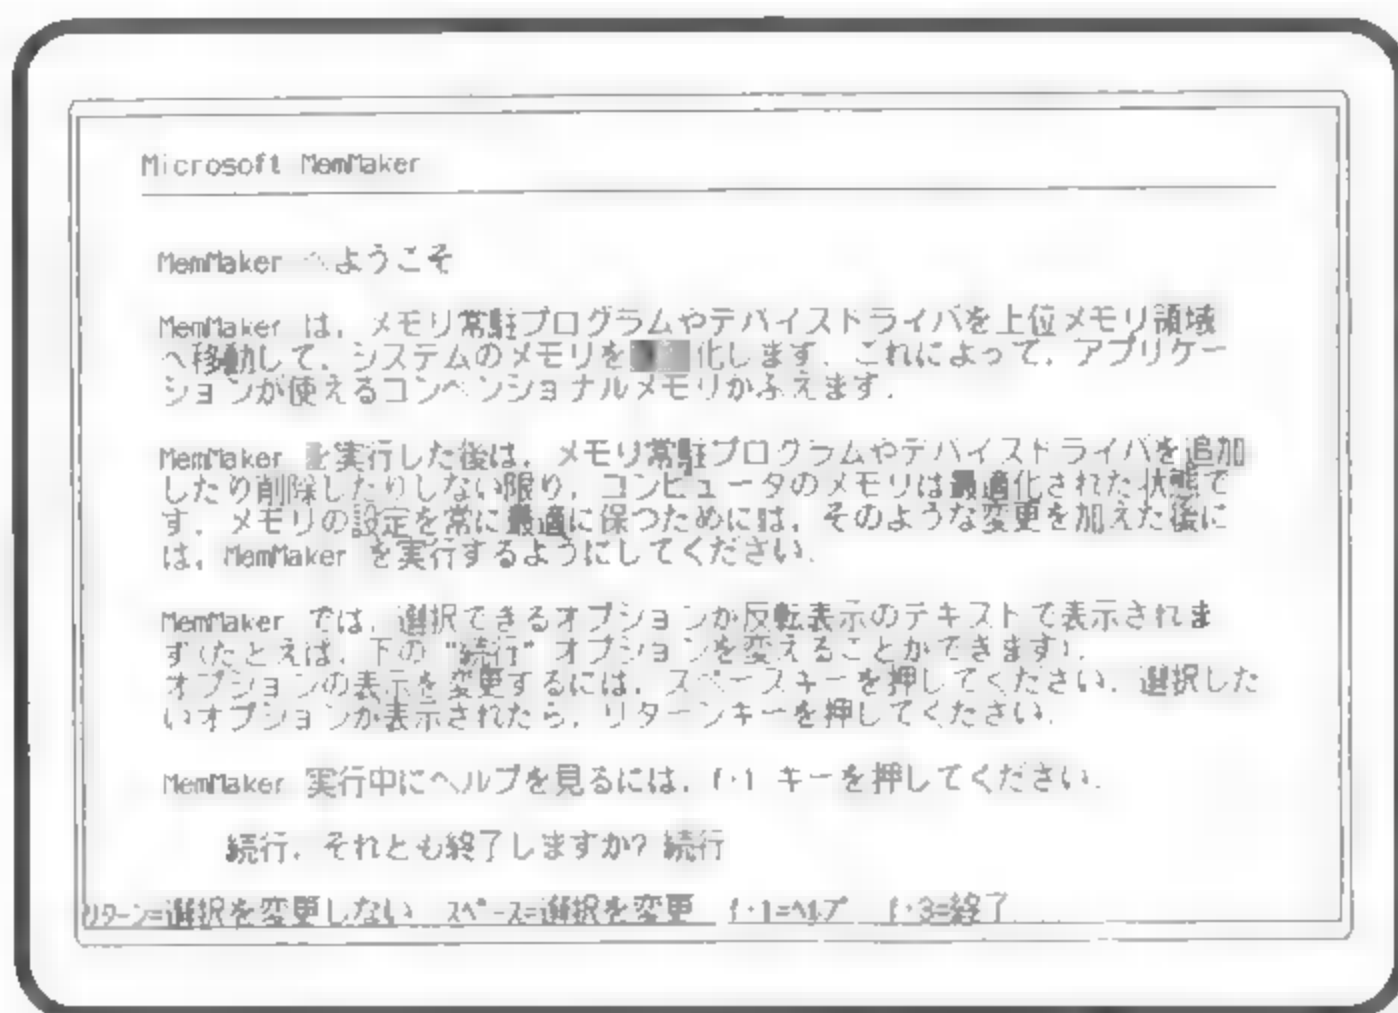 Microsoft MemMaker
MemMaker へようこそ
MemMaker は, メモリ常駐プログラムやデバイスドライバを上位メモリ領域
へ移動して, システムのメモリを 化します. これによって, アプリケー
ションが使えるコンベンショナルメモリがふえます.
MemMaker を実行した後は, メモリ常駐プログラムやデバイスドライバを追加
したり削除したりしない限り, コンピュータのメモリは最適化された状態で
す. メモリの設定を常に最適に保つためには, そのような変更を加えた後に
は, MemMaker を実行するようにしてください.
MemMaker では, 選択できるオプションが反転表示のテキストで表示されま
す(たとえば, 下の "続行" オプションを変えることができます).
オプションの表示を変更するには, スペースキーを押してください. 選択した
いオプションが表示されたら, リターンキーを押してください.
MemMaker 実行中にヘルプを見るには, f・1 キーを押してください.
続行, それとも終了しますか? 続行
リターン=選択を変更しない スペース=選択を変更 f・1=ヘルプ f・3=終了